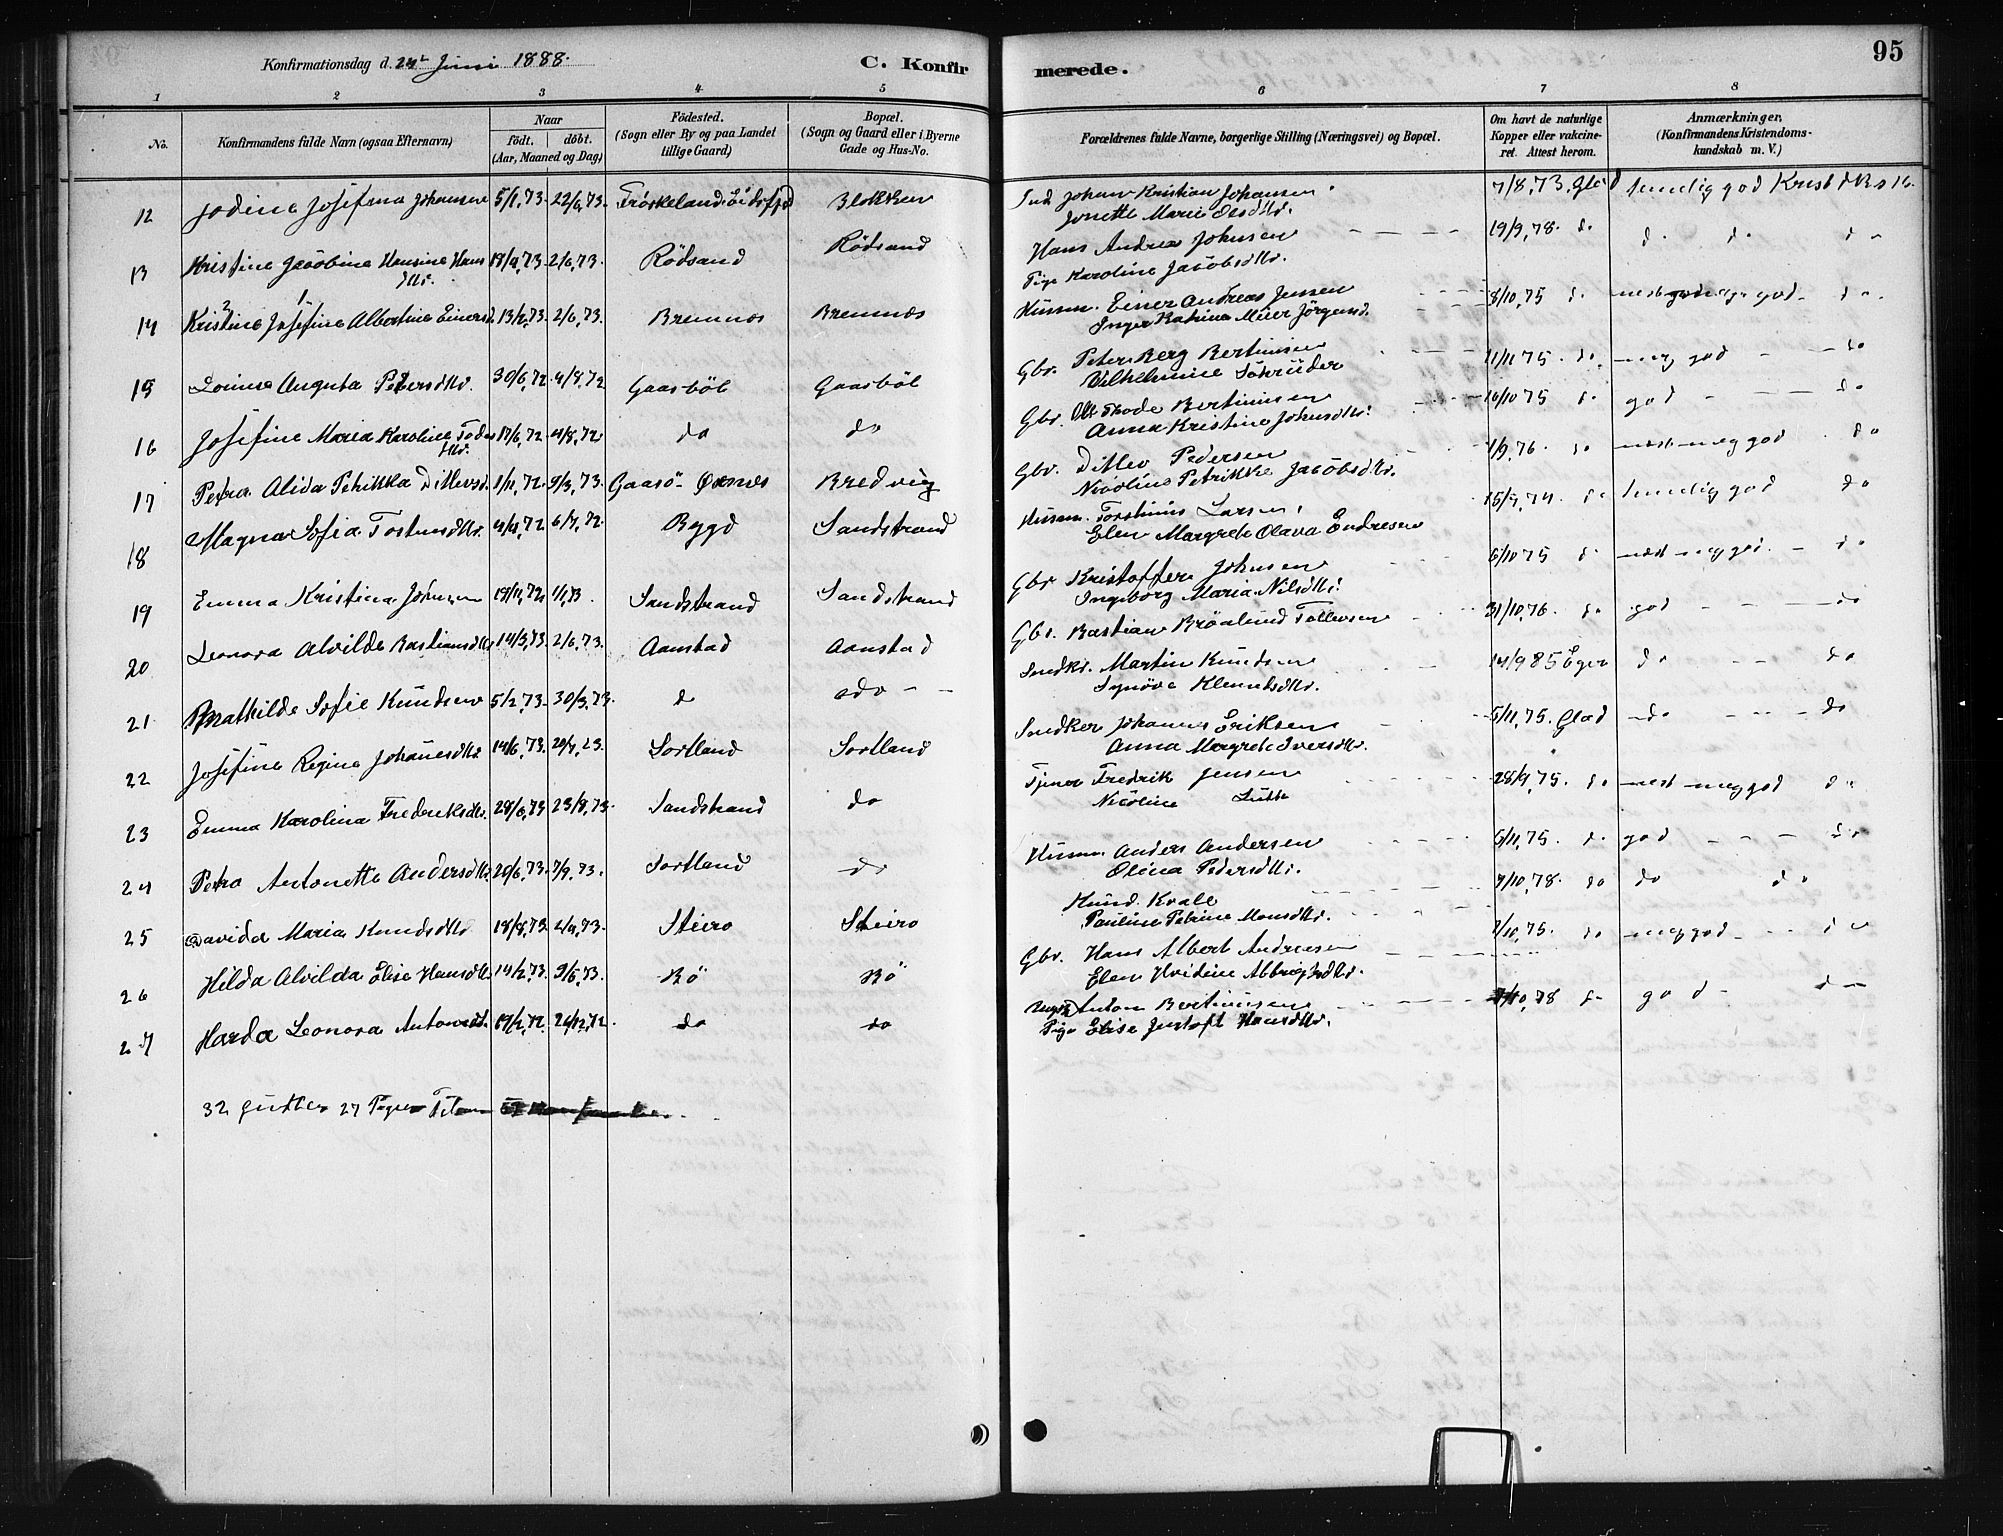 95
Konfirmationsdag d. 24de Juni 1888.
C. Konfirmerede.
1 2 3 4 5 6 7 8
No.
Konfirmandens fulde Navn (ogsaa Efternavn)
Naar
født. døbt.
(Aar, Maaned og Dag)
Fødested.
(Sogn eller By og paa Landet
tillige Gaard)
Bopæl.
(Sogn og Gaard eller i Byerne
Gade og Hus-No.
Forældrenes fulde Navne, borgerlige Stilling (Næringsvei) og Bopæl.
Om havt de naturlige
Kopper eller vakcine-
ret. Attest herom.
Anmærkninger.
(Konfirmandens Kristendoms-
kundskab m. V.)
12 Jodine Josefina Johansen 5/1,73. 22/6,73. Frøskeland Eidsfjd Blokken Johan Kristian Johansen 7/8,73. Glad temelig god Krist
Jonette Marie Olsdtr.
13 Kristine Jacobine Hansine Hans 19/4,73. 2/6,73. Rödsand Rödsand Hans Andrea Johnsen 19/9,78. do do do do
dtr. Pige Karoline Jacobsdtr.
14 Kristine Josefine Albertine Einersd. 13/2,73. 2/6,73. Bremnes Bremnes Husm. Einer Andreas Jensen 8/10,75 do god do
Inger Katrina Meier Jörgensd.
15 Lovise Augusta Petersdtr. 30/6,72 4/8,72 Gaasböl Gaasböl Gbr. Peter Berg Bertinusen 11/11 75. do meg god do
Vilhelmine Schrüder
16 Josefine Maria Karoline Todes 17/6,72. 4/8,72. do do Gbr. Ole Thode Bertinusen 10/10 75 do god do
dtr. Anna Kristine Johnsdtr.
17 Petra Alida Petrikka Ditlevsd. 1/11,72. 9/3,73. Gaasö Öxnes Bredvig Gbr. Ditlev Pedersen 1/9,76. do næst meg god do
Nicoline Petrikke Jacobsdtr.
18 Magna Sofia Tostensdtr. 4/4,72 6/7,72. Bygd Sandstrand Husm. Torstinus Larsen 15/9,74. do temelig god do
Elen Margrete Olava Endresen
19 Emma Kristina Johnsen 19/11,72 1/1,73. Sandstrand Sandstrand Gbr Kristoffer Johnsen 6/10 75 do næst meg god do
Ingeborg Maria Nilsdtr.
20 Leonora Alvilde Bastiansdtr 14/3,73. 2/6,73. Aanstad Aanstad Gbr. Bastian Brölund Tollevsen 31/10,76. do god do
21 Mathilde Sofie Knudsen 5/2,73. 30/3,73. do do Martin Knudsen 14/9 85 Eger do do
Synöve Klemetsdtr.
22 Josefine Regine Johanesdtr. 14/6,73. Sortland Sortland Johannes Eriksen 5/11,75. Glad do do
Anna Margrete Iversdtr.
23 Emma Karolina Frederiksdtr. 29/6,73 23/8,73. Sandstrand do Tjener Fredrik Jensen 28/9,75. do næst meg god do
Nicoline Lütke
24 Petra Antonette Andersdtr. 20/6,73. 7/9,73. Sortland do Husm. Anders Andersen 6/11,75. do god do
Olina Pedersdtr.
25 Davida Maria Knudsdtr 18/8,73. Steiro Steiro Knud Kvall 7/10,78. do do do
Pauline Petrine Monsdtr.
26 Hilda Alvilda Elise Hansdtr. 14/2,73. 9/6,73. Bö Bö Gbr. Hans Albert Andreasen 7/10,75. do meg god do
Elen Hvidine Abbrighdtr.
27 Harda Leonora Antonsdtr. 19/2,72. 26/12,72. do do Ungk. Anton Bertinusen 7/10,78 do god do
Pige Elise Justoft Hansdtr.
32 Gutter 27 Piger